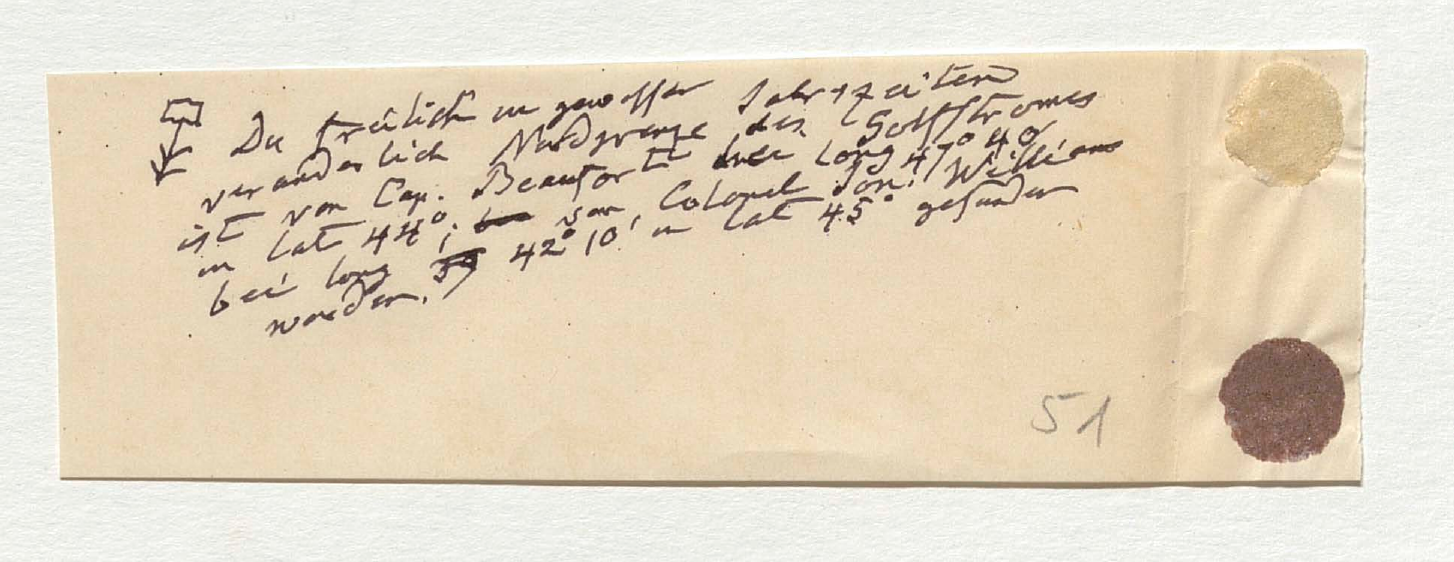 Die freilich in gewisser Jahrszeiten
veränderlich Nordgrenze des Golfstromes
ist von Cap. Beaufort bei long 47° 40'
in lat 44°, von Colonel Jon. Williams
bei long 42° 10' in lat 45° gefunden
worden.
51